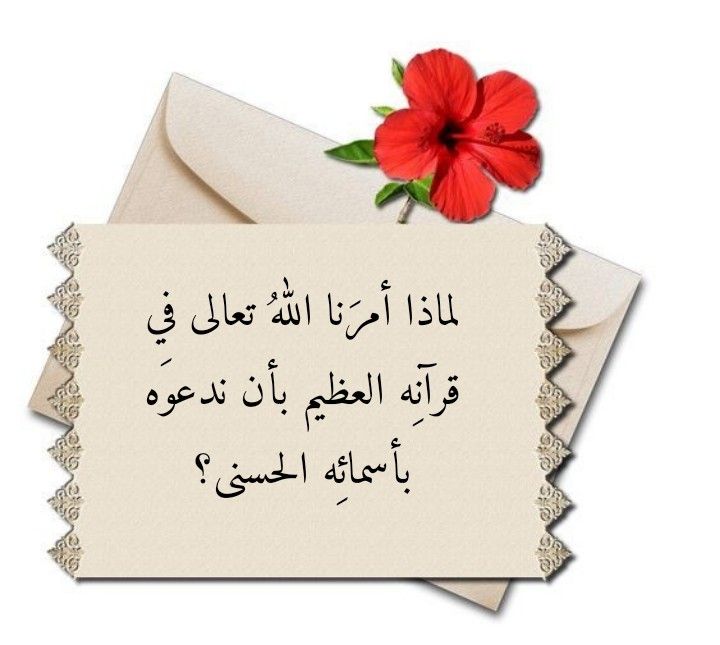 لماذا أمرَنا اللهُ تعالى فِي
قرآنِه العظيم بأن ندعوَه
بأسمائِه الحسنى؟